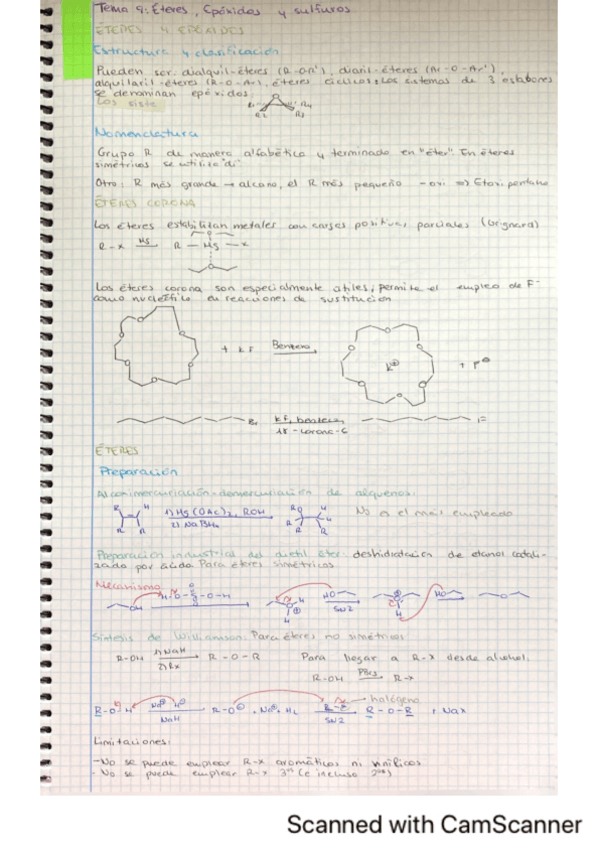 Tema 9: Éteres, Epóxidos y sulfuros
ÉTERES Y EPÓXIDOS
Estructura y clasificación
Pueden ser: dialquil-éteres (R-O-R'), diaril-éteres (Ar-O-Ar'),
alquilaril-éteres (R-O-Ar), éteres cíclicos. Los sistemas de 3 eslabones
se denominan epóxidos.
Los siste
Nomenclatura
Grupo R de manera alfabética y terminado en "éter". En éteres
simétricos se utiliza "di"
Otro: R más grande → alcano, el R más pequeño -oxi ⇒ Etoxipentano
ÉTERES CORONA
Los éteres estabilizan metales con cargas positivas parciales (Grignard)
R-X Mg R-Mg-X
Los éteres corona son especialmente útiles, permite el empleo de F-
como nucleófilo en reacciones de sustitución
+ KF Benceno K⊕ + F⊖
Br KF, benceno F
18-corona-6
ÉTERES
Preparación
Alcoximercuriación-demercuriación de alquenos:
1) Hg(OAc)2, ROH No es el más empleado
2) NaBH4
Preparación industrial del dietil éter: deshidratación de etanol catali-
zada por ácido. Para éteres simétricos
Mecanismo
OH H-O-S-O-H HO SN2 HO
Síntesis de Williamson: Para éteres no simétricos
R-OH 1) NaH R-O-R Para llegar a R-X desde alcohol.
2) RX
R-OH PBr3 R-X
halógeno
R-O-H Na⊕ H⊖ R-O⊖ + Na⊕ + H2 R-X R-O-R + NaX
NaH SN2
Limitaciones:
-No se puede emplear R-X aromáticos ni vinílicos
-No se puede emplear R-X 3rios (e incluso 2rios)
Scanned with CamScanner